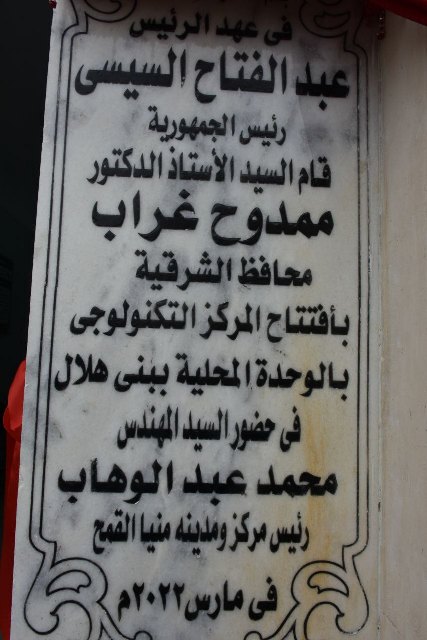 فى عهد الرئيس
عبد الفتاح السيسى
رئيس الجمهورية
قام السيد الأستاذ الدكتور
ممدوح غراب
محافظ الشرقية
بأفتتاح المركز التكنولوجى
بالوحدة المحلية ببنى هلال
فى حضور السيد المهندس
محمد عبد الوهاب
رئيس مركز ومدينه منيا القمح
فى مارس ٢٠٢٢م